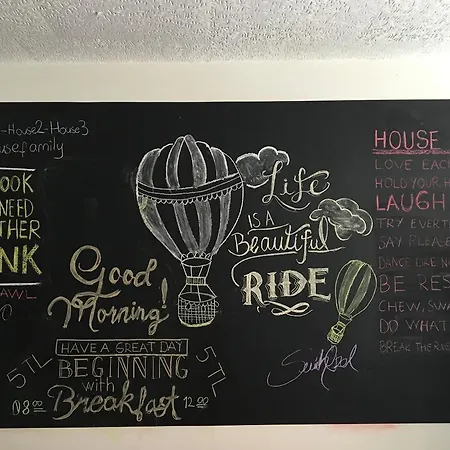 -House2-House3
usefamily
OOK
NEED
THER
NK
AWL
Good
Morning!
HAVE A GREAT DAY
BEGINNING
with
Breakfast
5TL
5TL
08:00
12:00
Life
IS A
Beautiful
RIDE
HOUSE
LOVE EAC
HOLD YOUR H
LAUGH
TRY EVERT
SAY PLEASE
DANCE LIKE NO
BE RES
CHEW, SWA
DO WHAT
BREAK THE RU